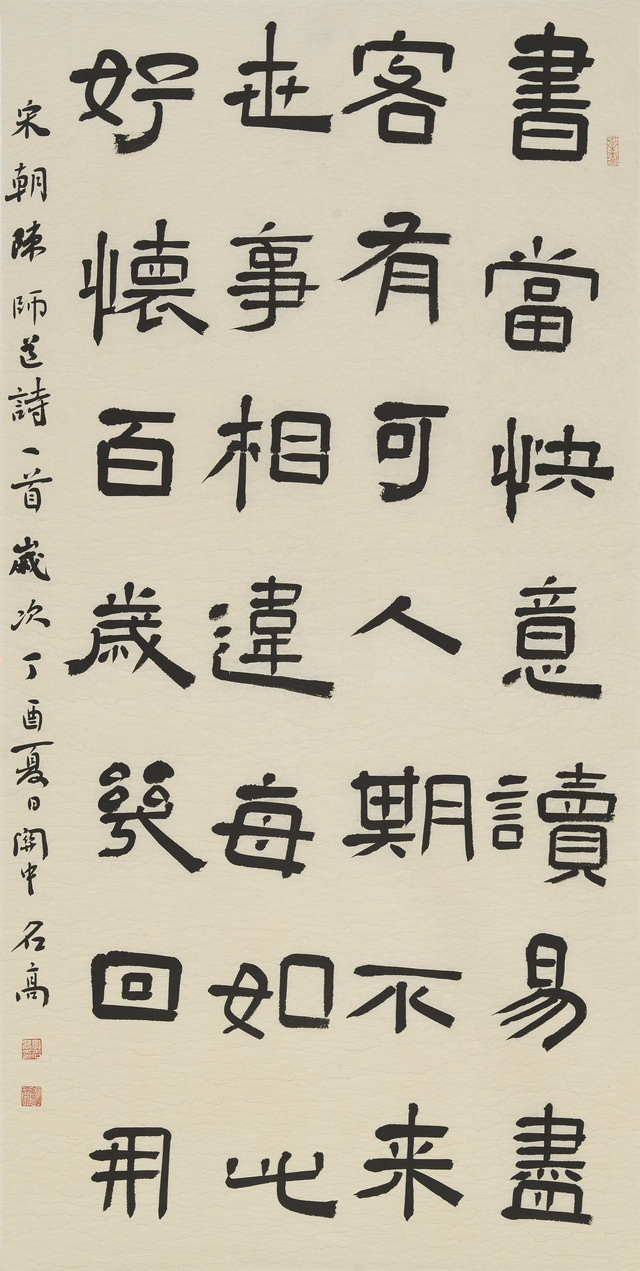 書當快意讀易盡
客有可人期不来
世事相違每如此
好懷百歲幾回開
宋朝陳師道詩一首歲次丁酉夏日關中石高